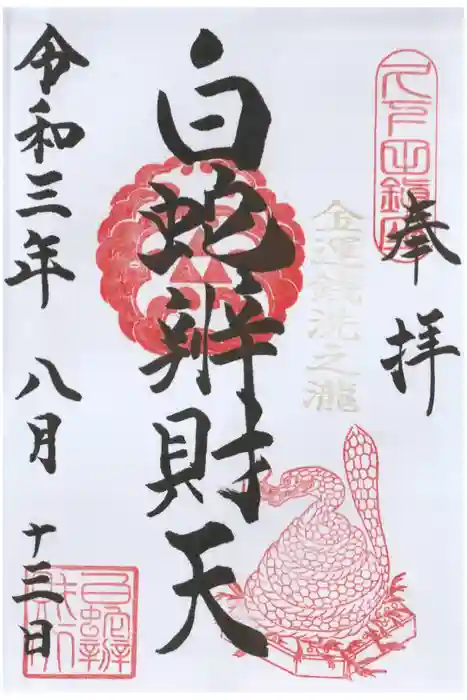 久下田鎮座
奉拝
金運銭洗之瀧
白蛇辨財天
令和三年 八月 十三日
白蛇辨財天